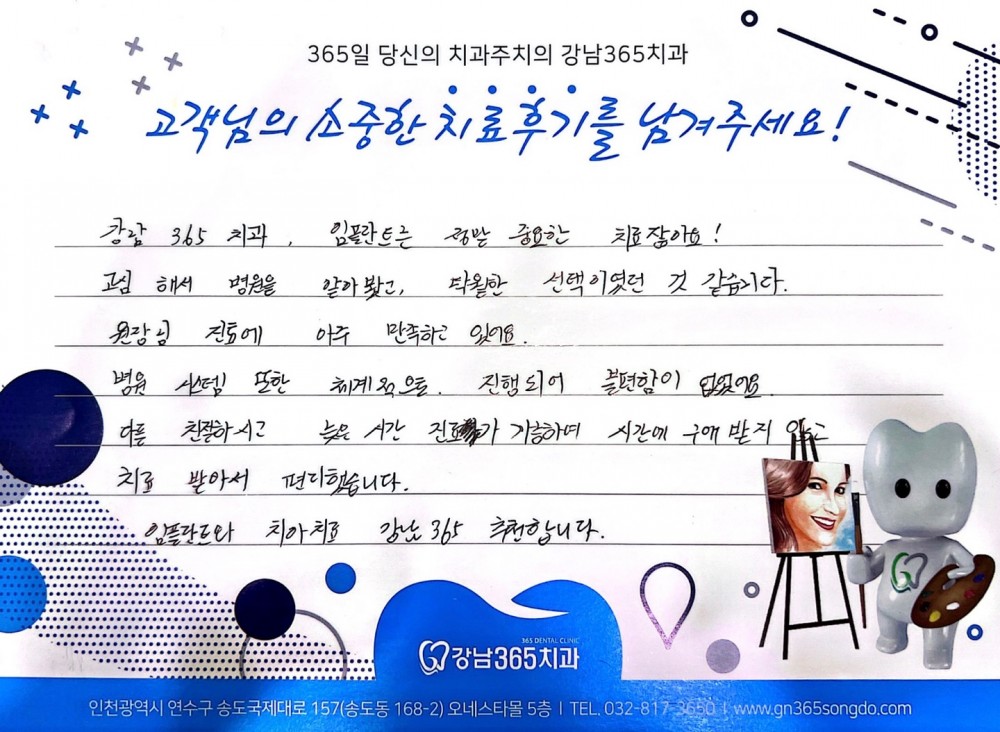 365일 당신의 치과주치의 강남365치과
고객님의 소중한 치료후기를 남겨주세요!
강남 365 치과, 임플란트는 정말 중요한 치료잖아요!
고심 해서 병원을 알아봤고, 탁월한 선택이였던 것 같습니다.
원장님 진료에 아주 만족하고 있어요.
병원 시스템 또한 체계적으로. 진행되어 불편함이 없었어요
다들 친절하시고 늦은 시간 진료가 가능하며 시간에 구애 받지 않고
치료 받아서 편리했습니다.
임플란트와 치아치료 강남 365 추천합니다.
365 DENTAL CLINIC
강남365치과
인천광역시 연수구 송도국제대로 157(송도동 168-2) 오네스타몰 5층 | TEL. 032-817-3650 | www.gn365songdo.com